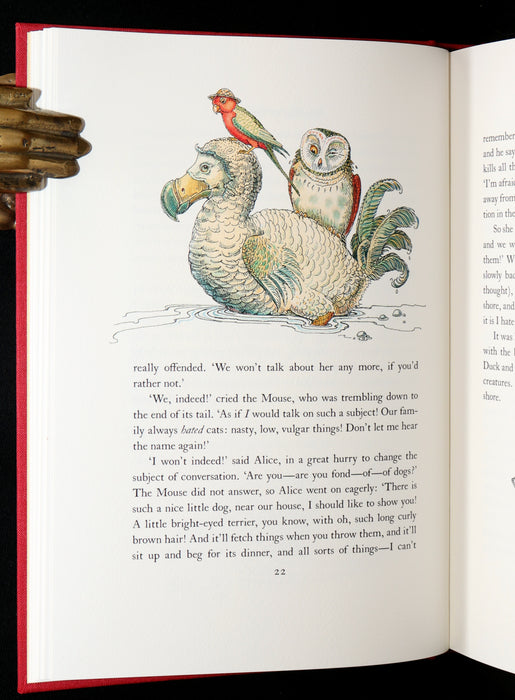 really offended. ‘We won’t talk about her any more, if you’d
rather not.’
‘We, indeed!’ cried the Mouse, who was trembling down to
the end of its tail. ‘As if I would talk on such a subject! Our fam-
ily always hated cats: nasty, low, vulgar things! Don’t let me hear
the name again!’
‘I won’t indeed!’ said Alice, in a great hurry to change the
subject of conversation. ‘Are you—are you fond—of—of dogs?’
The Mouse did not answer, so Alice went on eagerly: ‘There is
such a nice little dog, near our house, I should like to show you!
A little bright-eyed terrier, you know, with oh, such long curly
brown hair! And it’ll fetch things when you throw them, and it’ll
sit up and beg for its dinner, and all sorts of things—I can’t
22
remember
and he say
kills all th
‘I’m afraid
away from
tion in tho
So she
and we w
them!’ W
slowly bac
thought),
shore, and
it is I hate
It was
with the
Duck and
creatures.
shore.